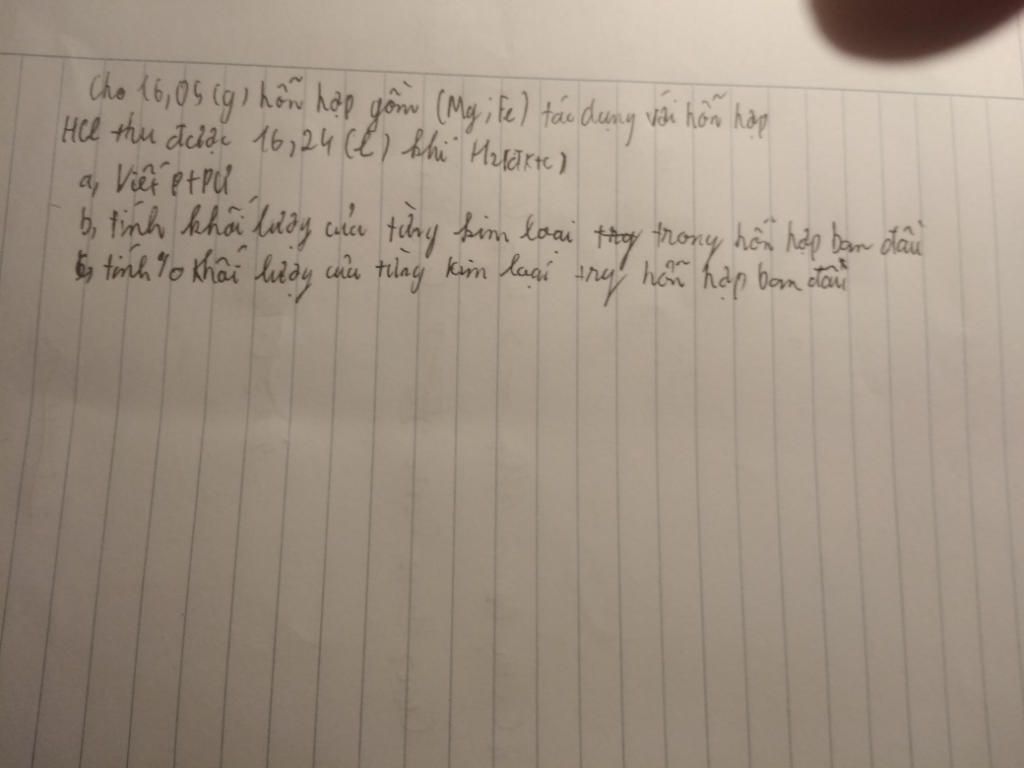 Cho 16,05 (g) hỗn hợp gồm (Mg; Fe) tác dụng với hỗn hợp
HCl thu được 16,24 (l) khí H2(đktc)
a, Viết PTPƯ
b, tính khối lượng của từng kim loại trong hỗn hợp ban đầu
c, tính % khối lượng của từng kim loại trng hỗn hợp ban đầu